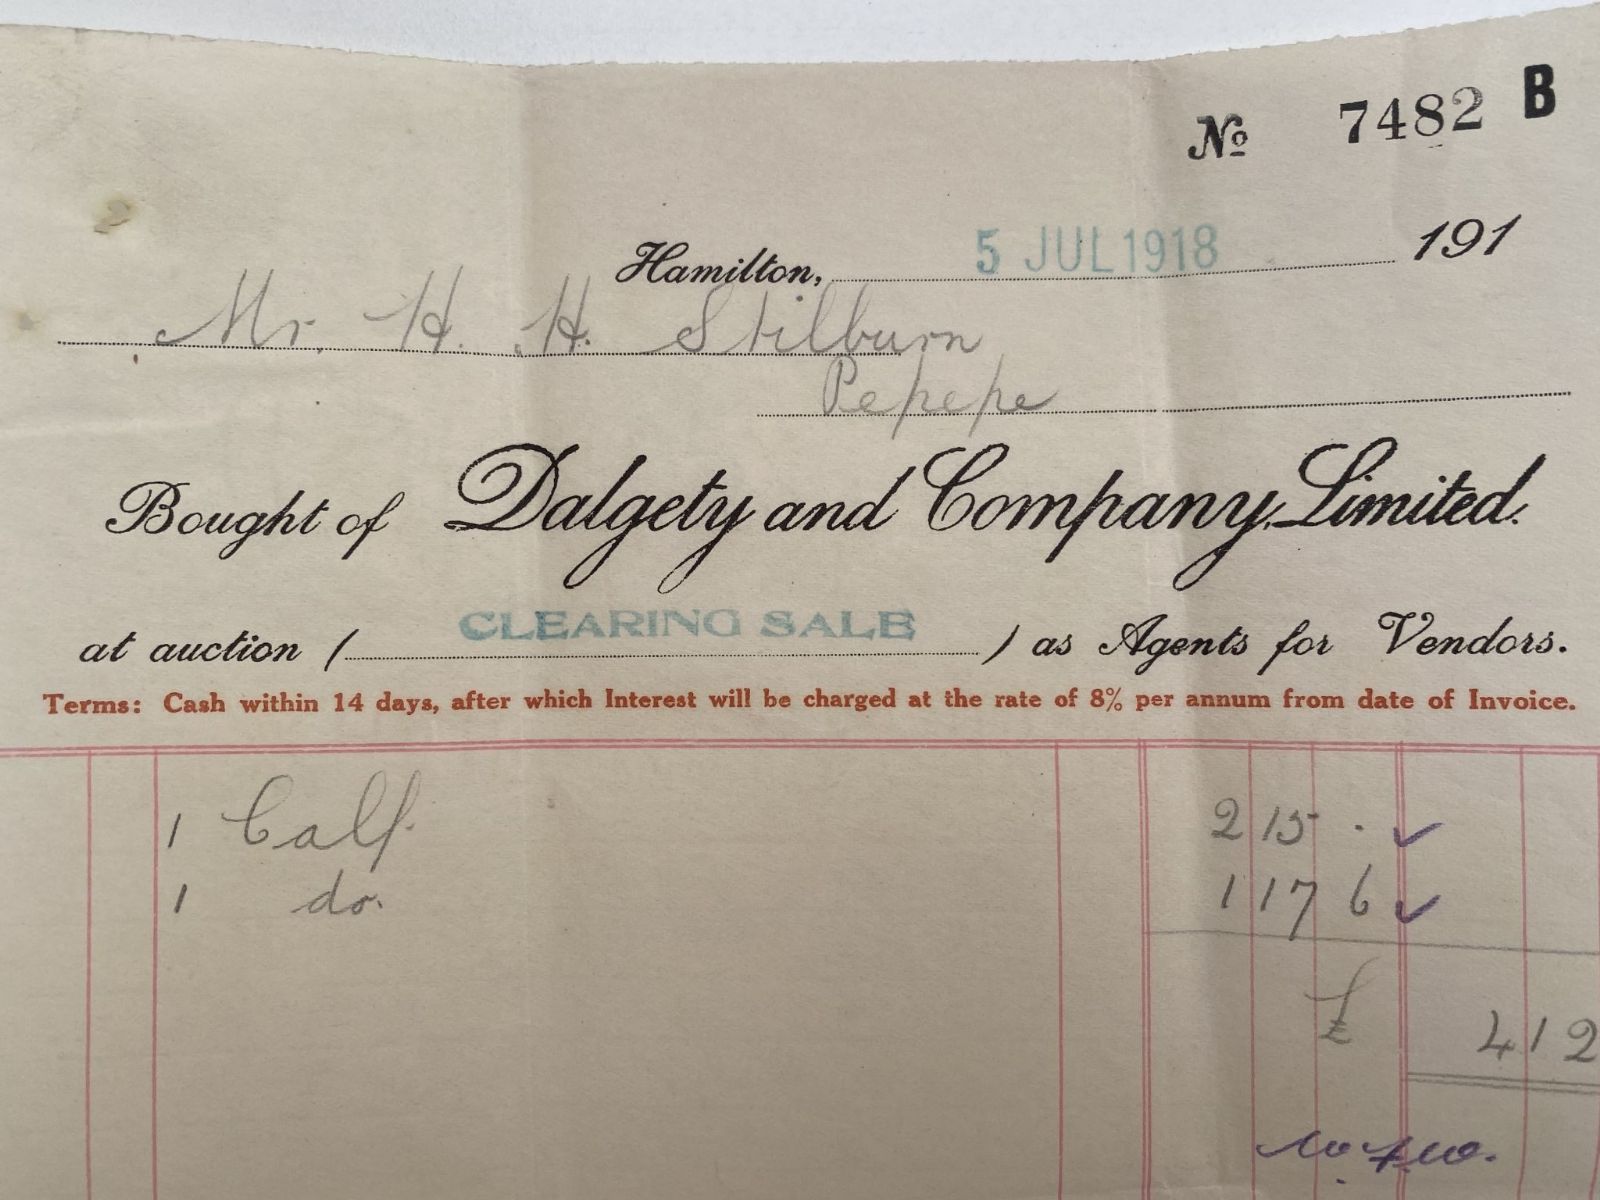 No 7482 B
Hamilton, 5 JUL 1918 191
Mr. H. H. Stilburn
Pepepe
Bought of Dalgety and Company, Limited.
at auction ( CLEARING SALE ) as Agents for Vendors.
Terms: Cash within 14 days, after which Interest will be charged at the rate of 8% per annum from date of Invoice.
1 Calf. 2 15 . ✓
1 do. 1 17 6 ✓
£ 4 12